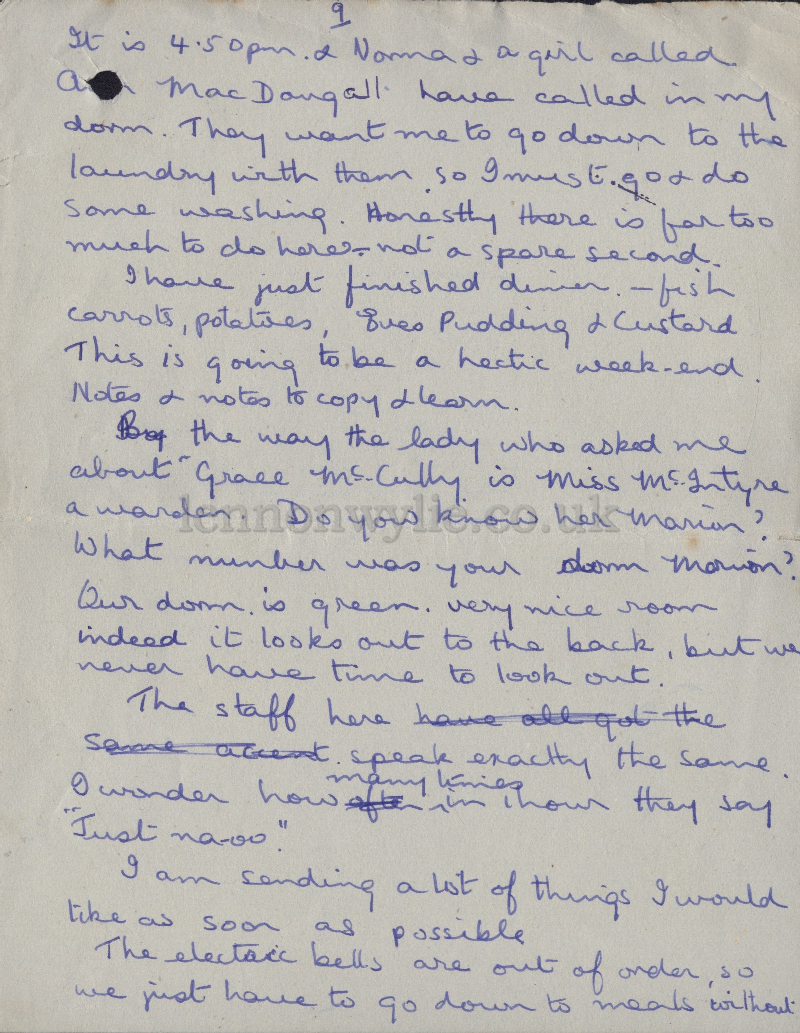 9
It is 4.50pm. & Norma & a girl called
MacDougall have called in my
dorm. They want me to go down to the
laundry with them, so I must go & do
some washing. Honestly there is far too
much to do here - not a spare second.
I have just finished dinner. - fish
carrots, potatoes, Eves Pudding & Custard
This is going to be a hectic week-end.
Notes & notes to copy & learn.
By the way the lady who asked me
about Grace McCully is Miss McIntyre
a warden Do you know her Marion?
What number was your dorm Marion?
Our dorm. is green. very nice room
indeed it looks out to the back, but we
never have time to look out.
The staff here have all got the
same accent. speak exactly the same.
I wonder how often many times in 1 hour they say
"Just na-oo".
I am sending a list of things I would
like as soon as possible
The electric bells are out of order, so
we just have to go down to meals without
lennonwylie.co.uk